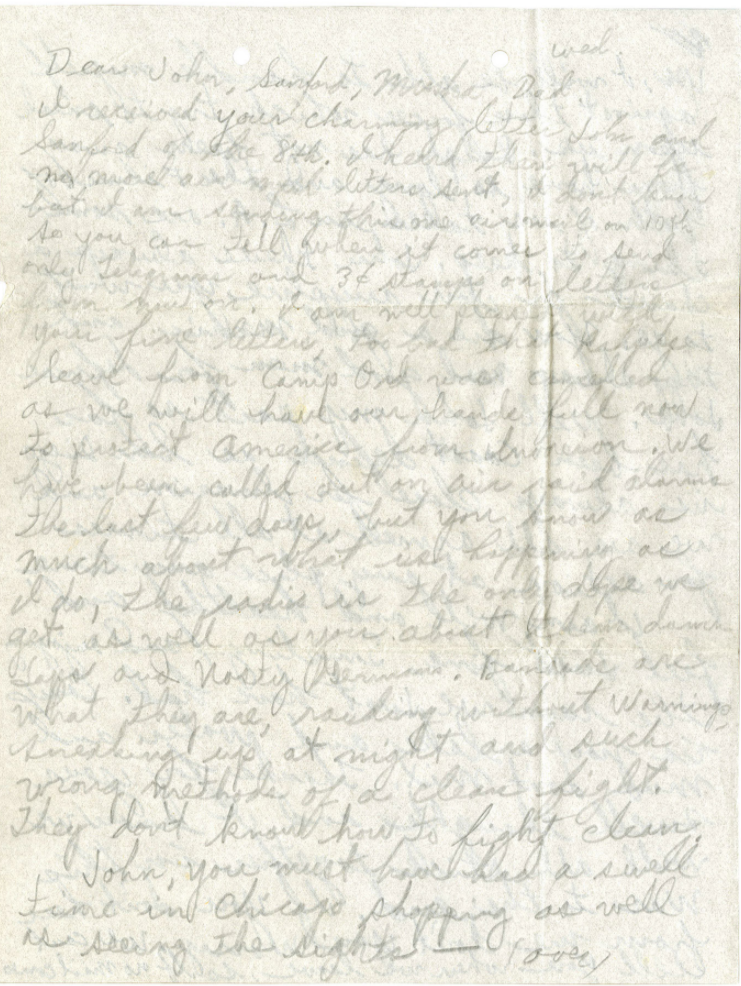 wed.
Dear John, Sanford, Mother Dad
I received your charming letter John and
Sanford of the 8th. I heard there will be
no more air mail letters sent, I dont know
but I am sending this one air mail on 10th
so you can tell when it comes to send
only Telegrams and 3¢ stamps on letters
from now on. I am well pleased with
your fine letters, too bad that
leave from Camp Ord was cancelled
as we will have our hands full now
to protect America from invasion. We
have been called out on air raid alarms
the last few days, but you know as
much about what is happening as
I do, the radio is the only dope we
get as well as you about them damn
Japs and Germans. are
what they are, raiding without Warnings,
sneaking up at night and such
wrong methods of a clean fight.
They don't know how to fight clean.
John, you must have had a swell
time in Chicago shopping as well
as seeing the sights — (over)